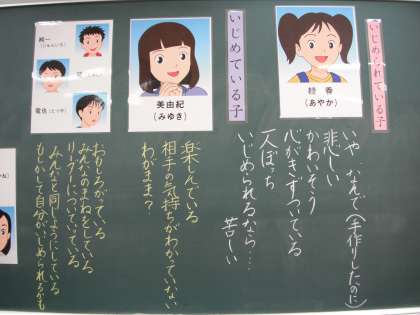 いじめられている子
綾香
(あやか)
いや なんで(手作りしたのに)
悲しい
かわいそう
心がきずついている
一人ぼっち
いじめられるなら…苦しい
いじめている子
美由紀
(みゆき)
楽しんでいる
相手の気持ちがわかっていない
わがまま?
純一
(じゅんいち)
竜也(たつや)
おもしろがっている
みんなのまねをしている
リーダーについていっている
みんなと同じようにしている
もしかして自分がいじめられるかも